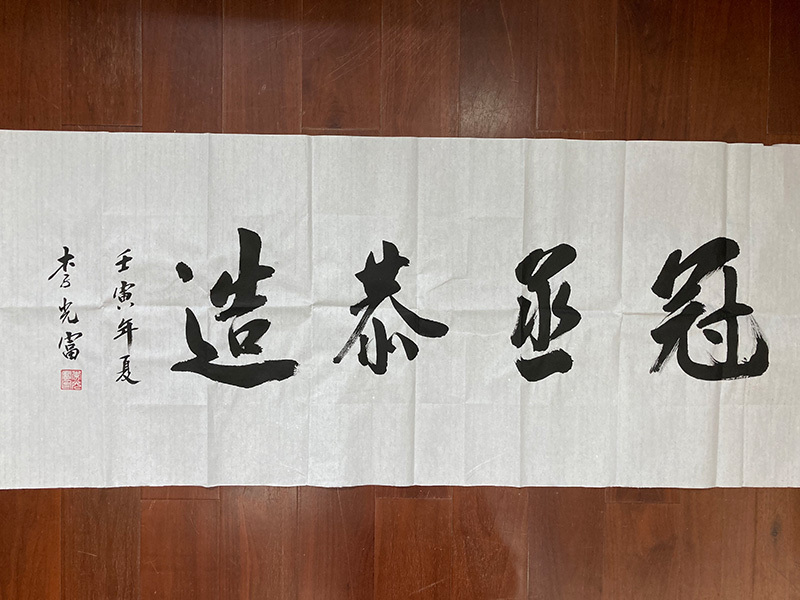 冠丞恭造
壬寅年夏
李光富